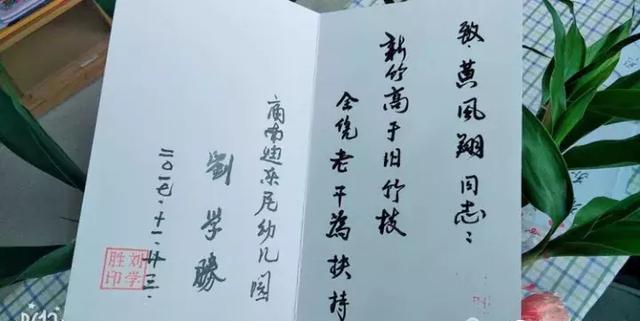 致黄风翔同志：
新竹高于旧竹枝
全凭老干為扶持
商南迪东尼幼儿园
劉学勝
二〇一七、十一、廿三、
刘学
胜印